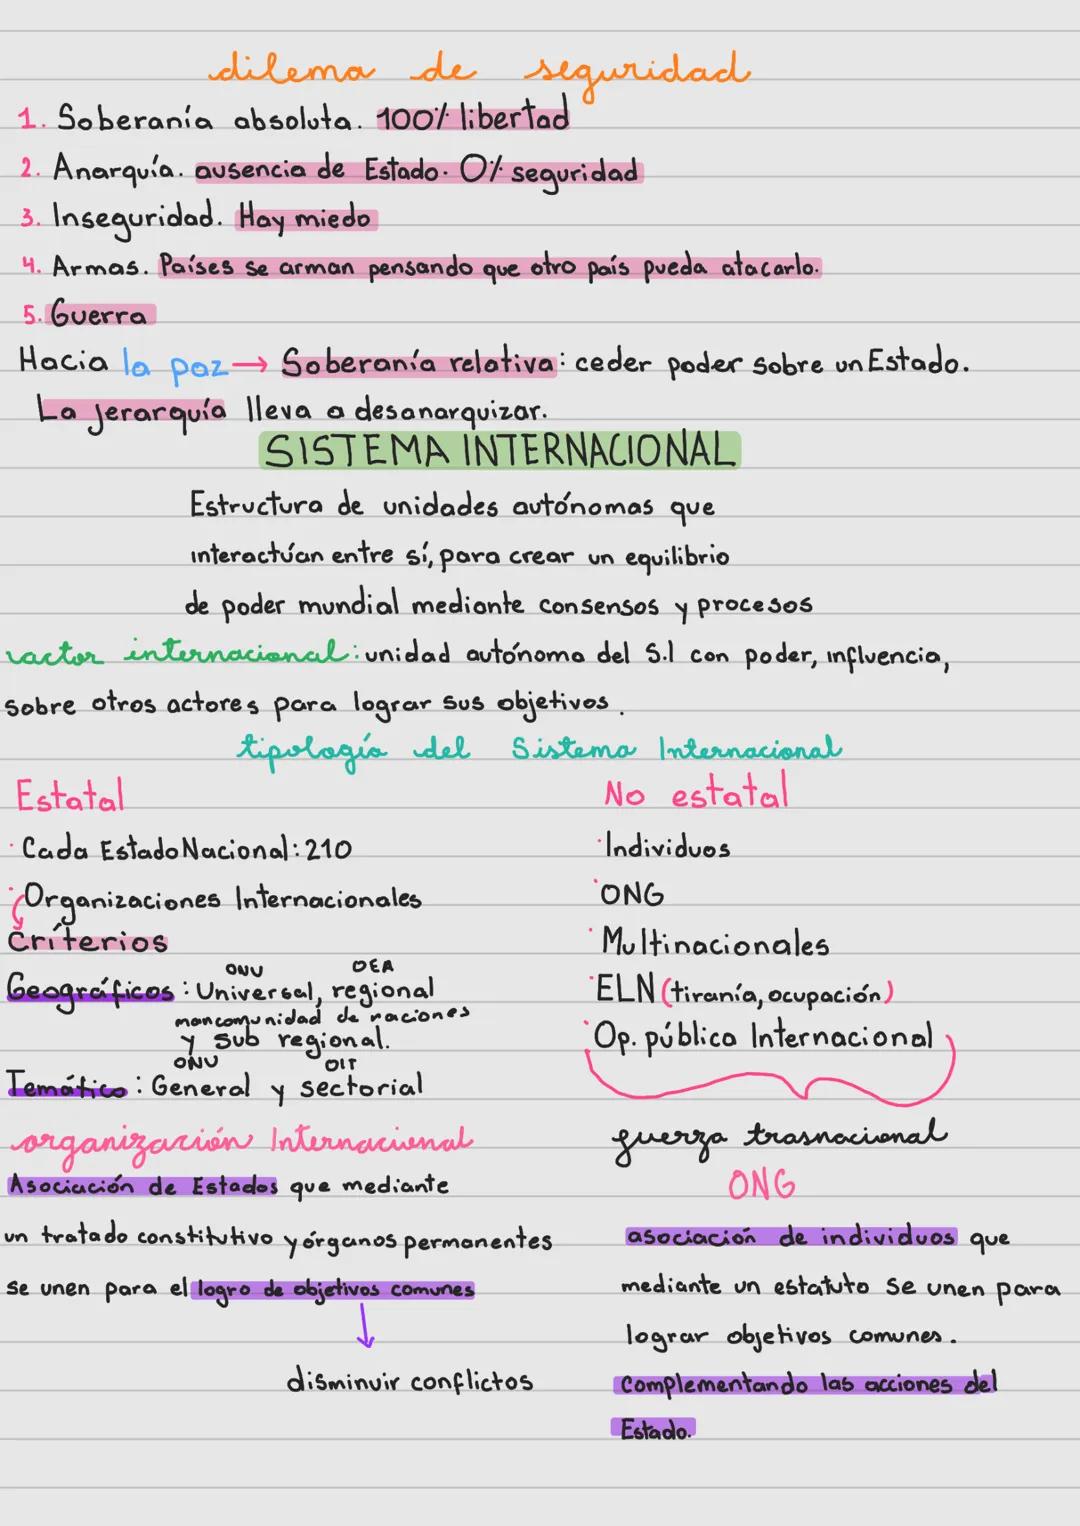 dilema de seguridad
1. Soberanía absoluta. 100% libertad
2. Anarquía. ausencia de Estado. 0% seguridad
3. Inseguridad. Hay miedo
4. Armas. Países se arman pensando que otro país pueda atacarlo.
5. Guerra
Hacia la paz → Soberanía relativa: ceder poder sobre un Estado.
La jerarquía lleva a desanarquizar.
SISTEMA INTERNACIONAL
Estructura de unidades autónomas que
interactúan entre sí, para crear un equilibrio
de poder mundial mediante consensos y procesos
actor internacional: unidad autónoma del S.I con poder, influencia,
sobre otros actores para lograr sus objetivos.
tipología del Sistema Internacional
Estatal
· Cada Estado Nacional: 210
· Organizaciones Internacionales
Criterios
ONU OEA
Geográficos: Universal, regional
mancomunidad de naciones
y sub regional.
ONU OIT
Temático: General y sectorial
organización Internacional
Asociación de Estados que mediante
un tratado constitutivo y órganos permanentes
se unen para el logro de objetivos comunes
↓
disminuir conflictos
No estatal
· Individuos
· ONG
· Multinacionales
· ELN (tiranía, ocupación)
· Op. pública Internacional
guerza trasnacional
ONG
asociación de individuos que
mediante un estatuto se unen para
lograr objetivos comunes.
Complementando las acciones del
Estado.